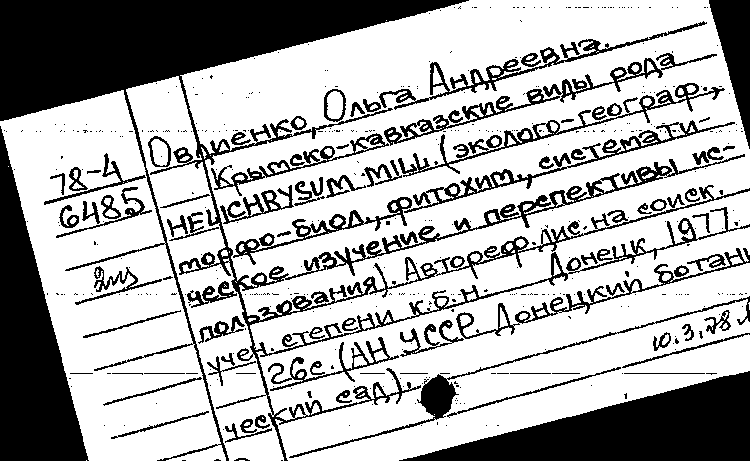 Овдиенко, Ольга Андреевна.
Крымско-кавказские виды рода
HELICHRYSUM MILL. (эколого-географ.,
морфо-биол., фитохим., системати-
ческое изучение и перспективы ис-
пользования). Автореф. дис. на соиск.
учен. степени к.б.н. Донецк, 1977.
26с. (АН УССР. Донецкий ботани
ческий сад).
78-4
6485
10.3.78